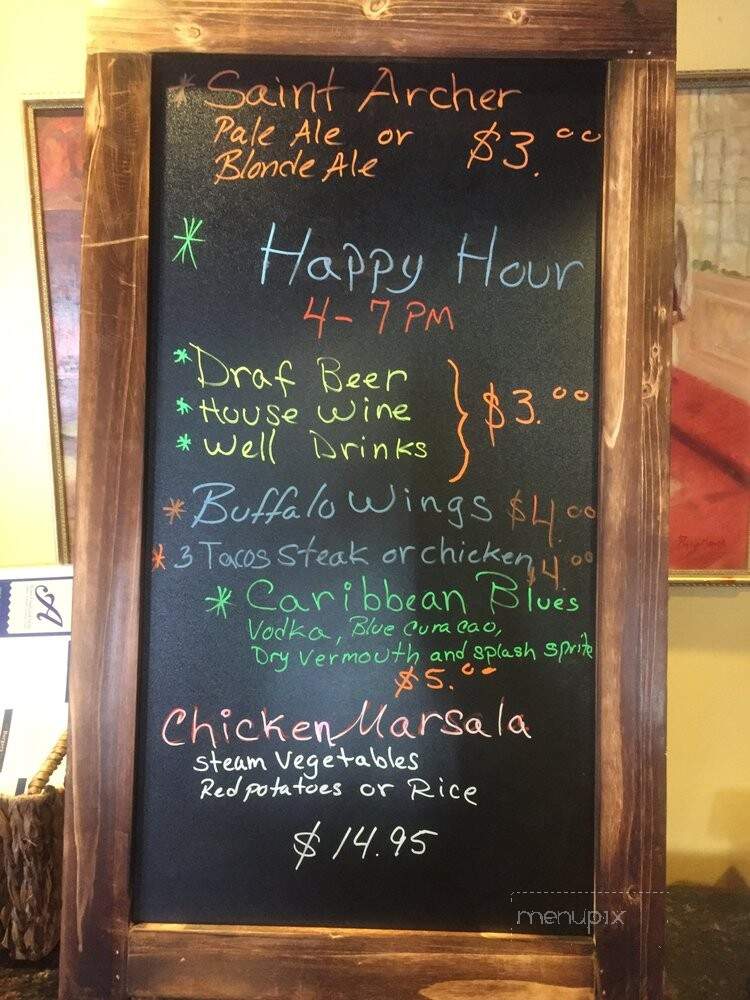 * Saint Archer
Pale Ale or
Blonde Ale
$3.00
* Happy Hour
4-7 PM
* Draf Beer
* House Wine
* Well Drinks
$3.00
* Buffalo Wings $4.00
* 3 Tacos Steak or chicken, $4.00
* Caribbean Blues
Vodka, Blue Curacao,
Dry Vermouth and splash sprite
$5.00
Chicken Marsala
Steam Vegetables
Red potatoes or Rice
$14.95
menupix
A